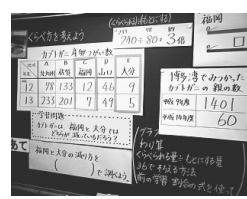 くらべ方を考えよう
(くらべられる÷もとにする)
780÷ 80=3倍
福岡
カブトガニ 産卵つがい数
A B C D E
北九州 佐賀 福岡 山口 大分
12 78 133 12 46 9
13 233 201 7 49 5
学習問題
カブトガニは、福岡と大分では
どちらが減っているだろう?
福岡と大分の減り方を
( )で調べよう。
博多湾でみつかった
カブトガニの親の数
平成9年度 1401
平成14年度 60
グラフ
わり算
くらべられる量ともとにする量
前の学習 割合の式を使って